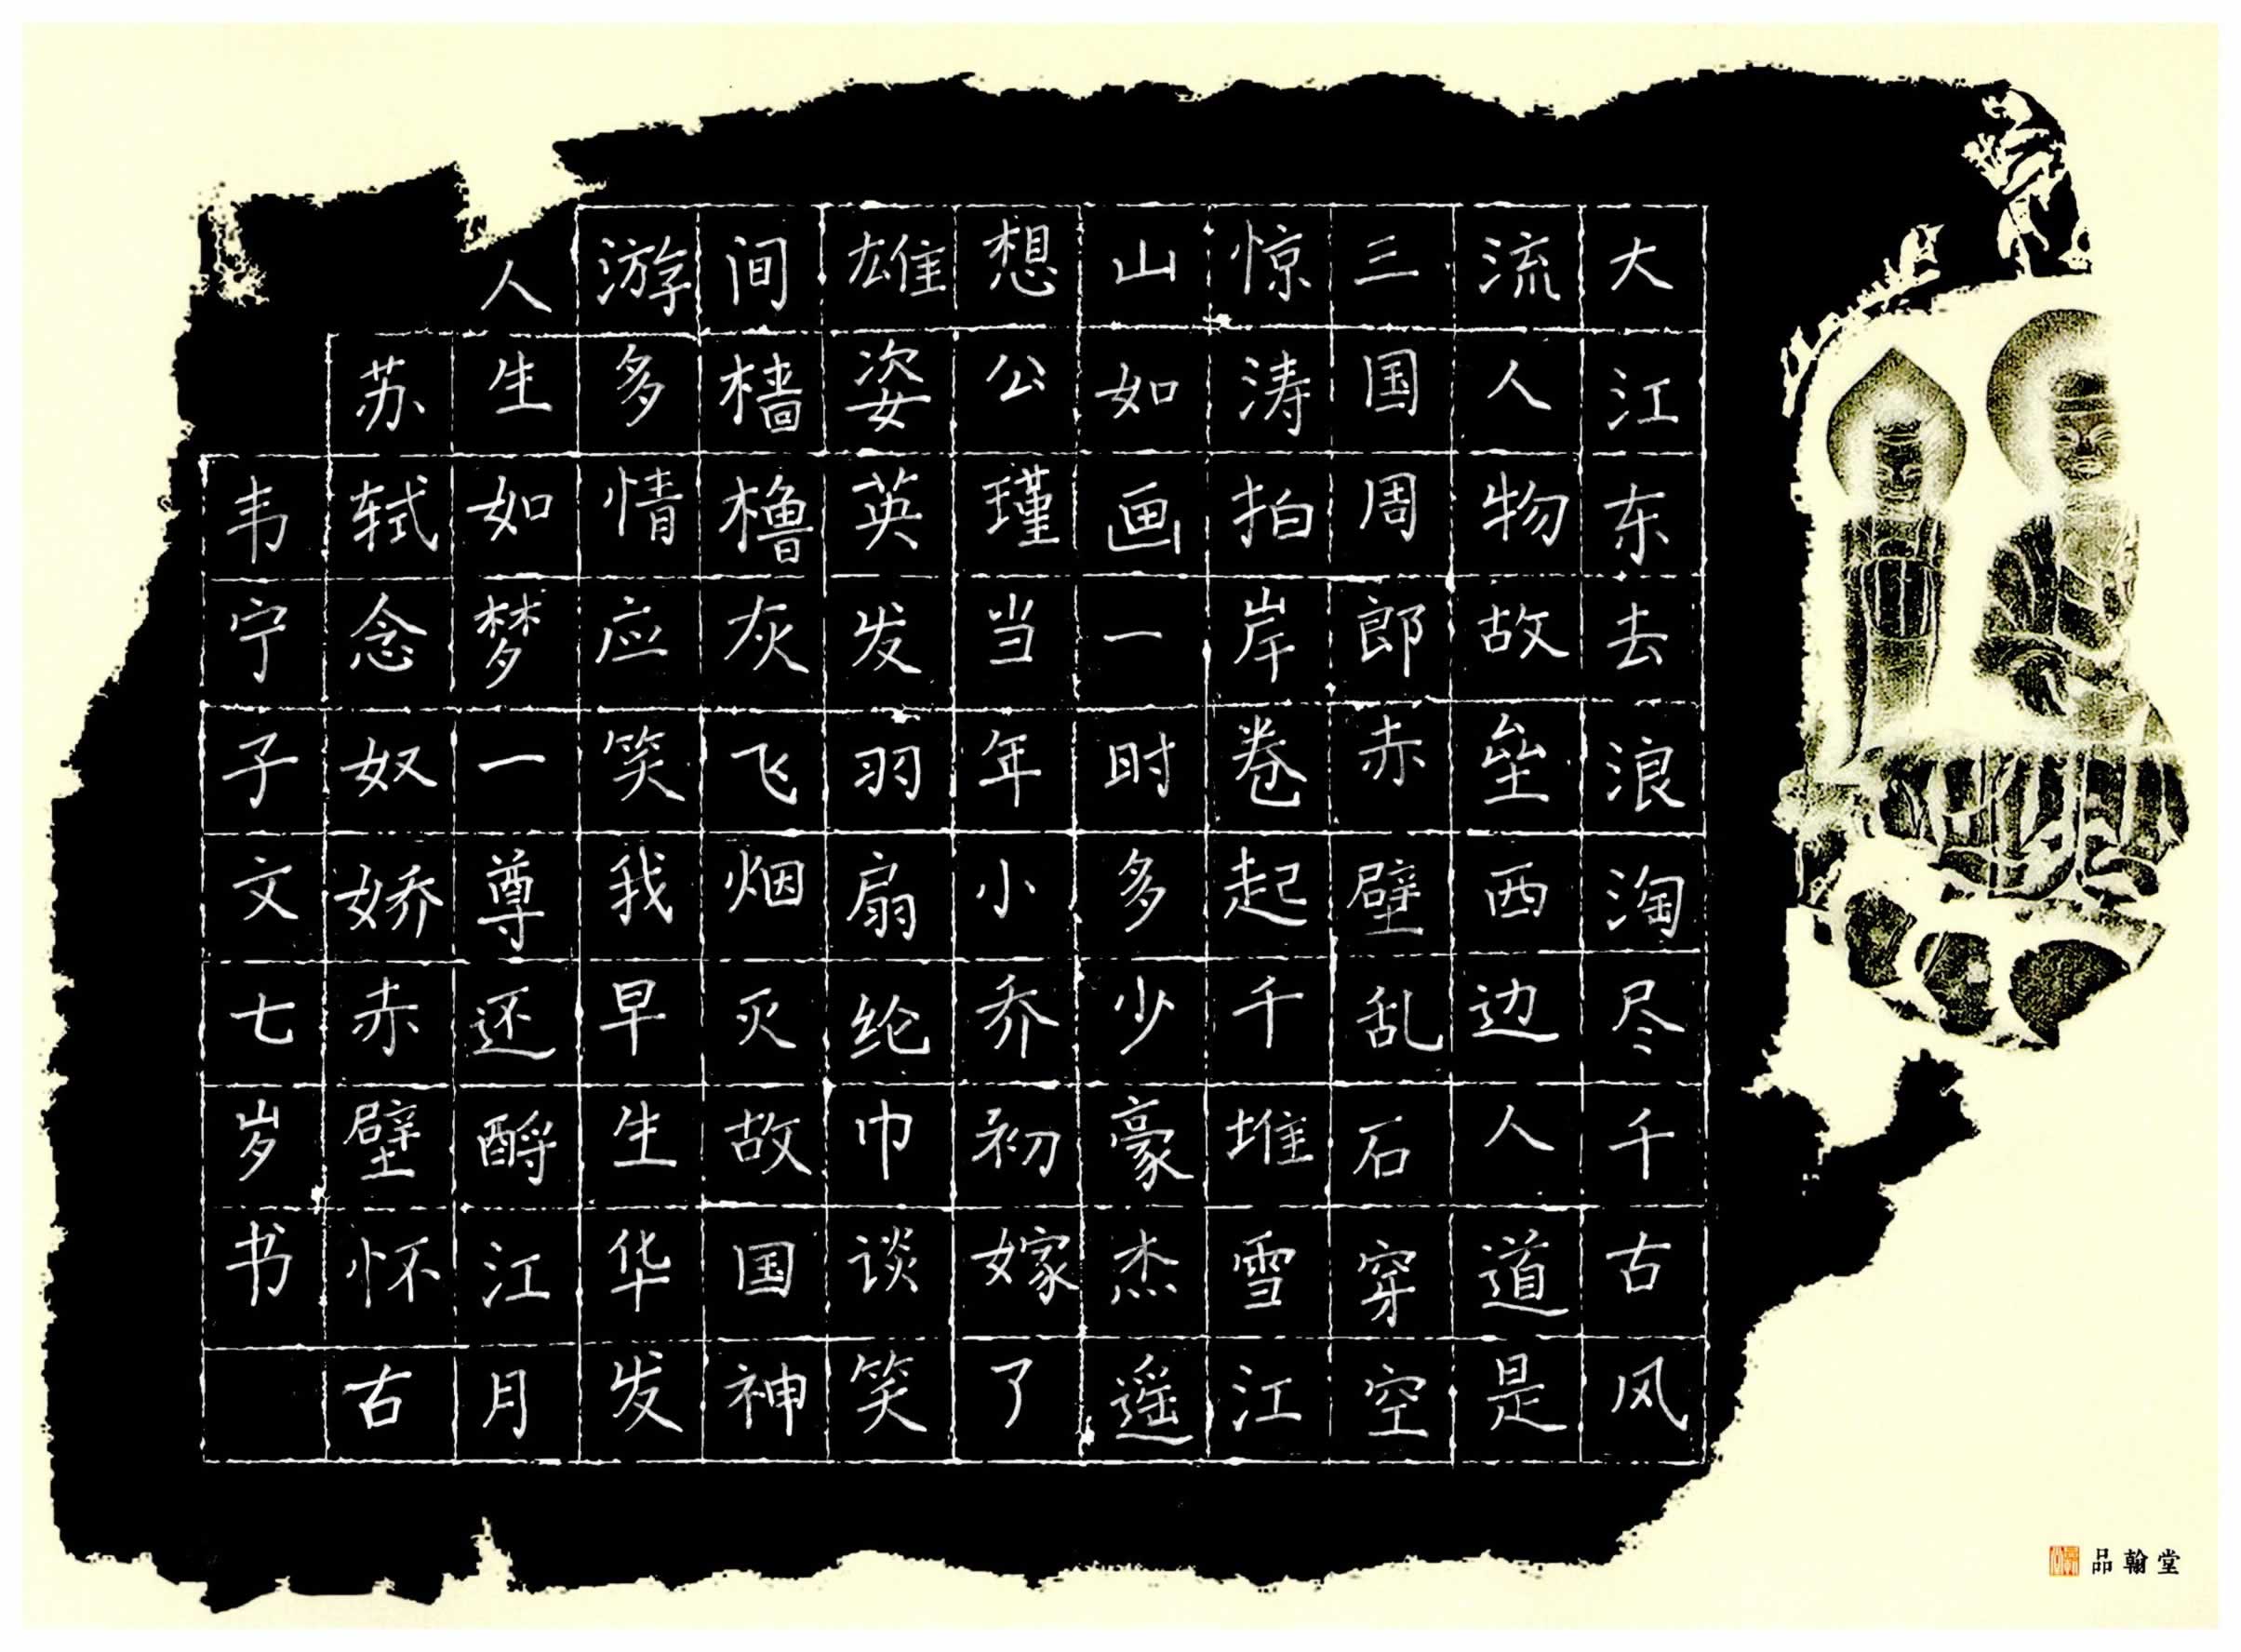 大江东去浪淘尽千古风
流人物故垒西边人道是
三国周郎赤壁乱石穿空
惊涛拍岸卷起千堆雪江
山如画一时多少豪杰遥
想公瑾当年小乔初嫁了
雄姿英发羽扇纶巾谈笑
间樯橹灰飞烟灭故国神
游多情应笑我早生华发
人生如梦一尊还酹江月
苏轼念奴娇赤壁怀古
韦宁子文七岁书
品翰堂